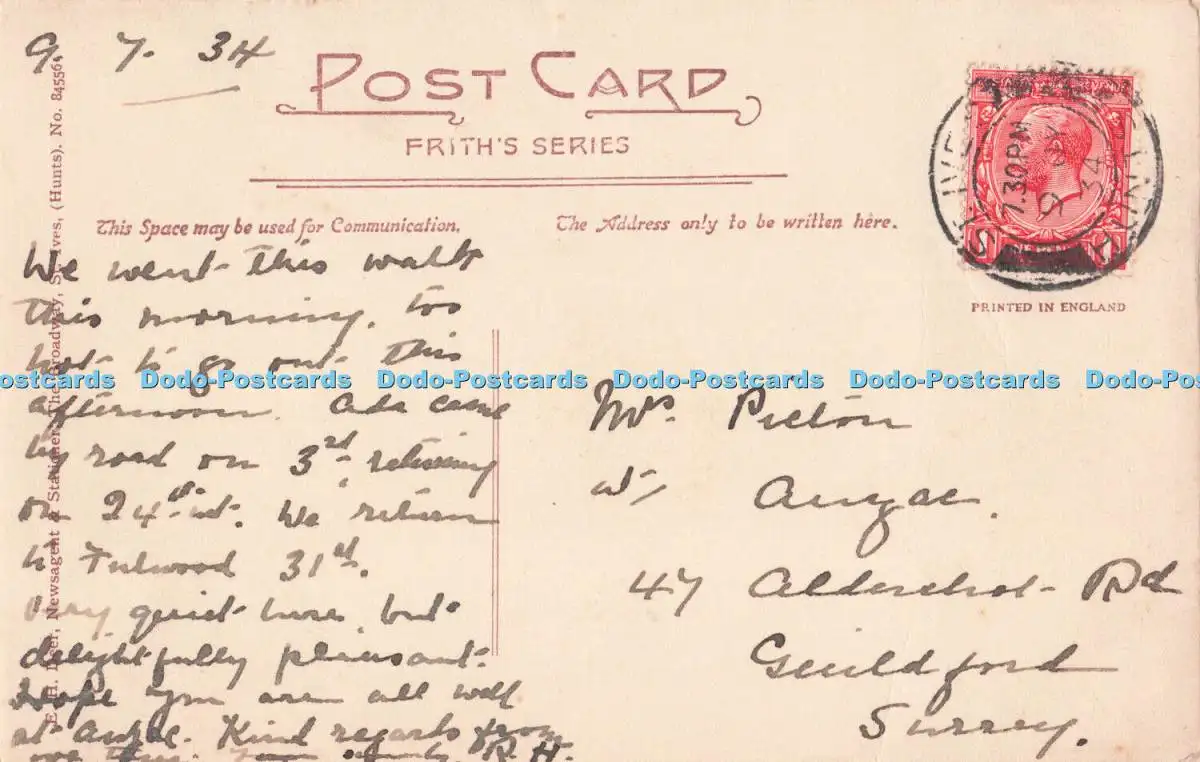 9. 7. 34
POST CARD
FRITH'S SERIES
This Space may be used for Communication.
The Address only to be written here.
PRINTED IN ENGLAND
ST. IVES
7.30PM
9 JY
34
HUNTS
Newsagent & Stationer, The Broadway, St. Ives, (Hunts). No. 84556
We went this walk
this morning. too
hot to go out this
afternoon. Ada came
by road on 3rd, returning
on 24th inst. We return
to Fulwood 31st.
Very quiet here, but
delightfully pleasant.
Hope you are all well
at Anzac. Kind regards from
R. H.
Mrs. Picton
Anzac.
47 Aldershot Rd
Guildford
Surrey.
Dodo-Postcards Dodo-Postcards Dodo-Postcards Dodo-Postcards Dodo-Postcards